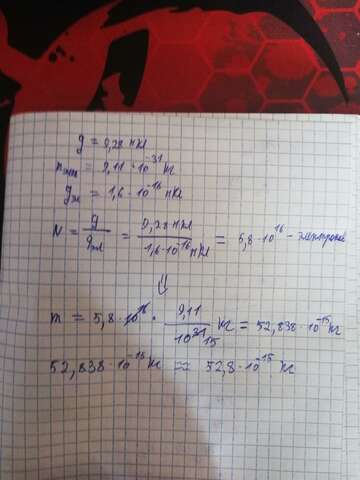 q = 9,28 нКл
mэл = 9,11 · 10⁻³¹ кг
qэл = 1,6 · 10⁻¹⁶ нКл
N = q/qэл = 9,28 нКл / 1,6 · 10⁻¹⁶ нКл = 5,8 · 10¹⁶ - электронов
⇓
m = 5,8 · 10¹⁶ · 9,11 / 10³¹ 15 кг = 52,838 · 10⁻¹⁵ кг
52,838 · 10⁻¹⁵ кг ≈ 52,8 · 10⁻¹⁵ кг